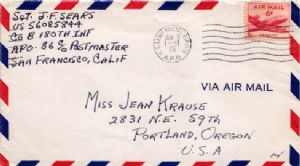 SGT. J.F. SEARS
US 56085844
CO B 180TH INF
APO. 86 c/o POSTMASTER
SAN FRANCISCO, CALIF
AIR MAIL
6¢
A.P.O.
VIA AIR MAIL
MISS JEAN KRAUSE
2831 N.E. 59TH
PORTLAND, OREGON
U.S.A